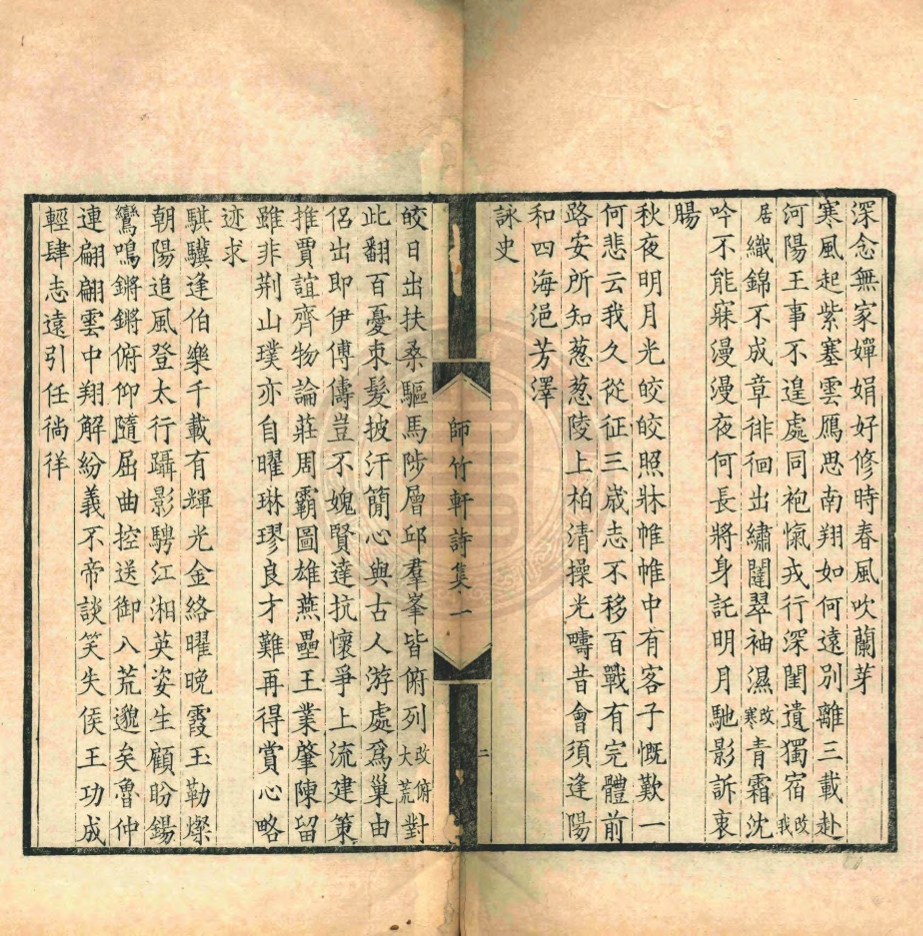 深念無家嬋娟好修時春風吹蘭芽
寒風起紫塞雲鴈思南翔如何遠別離三載赴
河陽王事不遑處同袍愾戎行深閨遺獨宿改我
居織錦不成章徘徊出繡闥翠袖濕改寒青霜沈
吟不能寐漫漫夜何長將身託明月馳影訴衷
腸
秋夜明月光皎皎照牀帷帷中有客子慨歎一
何悲云我久從征三歲志不移百戰有完體前
路安所知葱葱陵上柏清操光疇昔會須逢陽
和四海浥芳澤
詠史
師竹軒詩集一
二
皎日出扶桑驅馬陟層邱羣峯皆俯列改俯大荒對
此翻百憂朿髮披汗簡心與古人游處爲巢由
侶出即伊傅儔豈不媿賢達抗懷爭上流建策
推賈誼齊物論莊周霸圖雄燕壘王業肇陳留
雖非荆山璞亦自曜琳璆良才難再得賞心略
迹求
騏驥逢伯樂千載有輝光金絡曜晚霞玉勒燦
朝陽追風登太行躡影騁江湘英姿生顧盼鍚
鸞鳴鏘鏘俯仰隨屈曲控送御八荒邈矣魯仲
連翩翩雲中翔解紛義不帝談笑失侯王功成
輕肆志遠引任徜徉